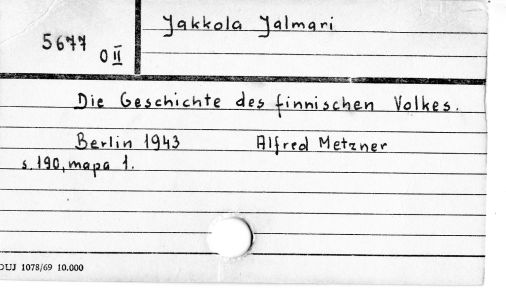 5677
O II
Jakkola Jalmari
Die Geschichte des finnischen Volkes.
Berlin 1943 Alfred Metzner
s. 190, mapa 1.
DUJ 1078/69 10.000